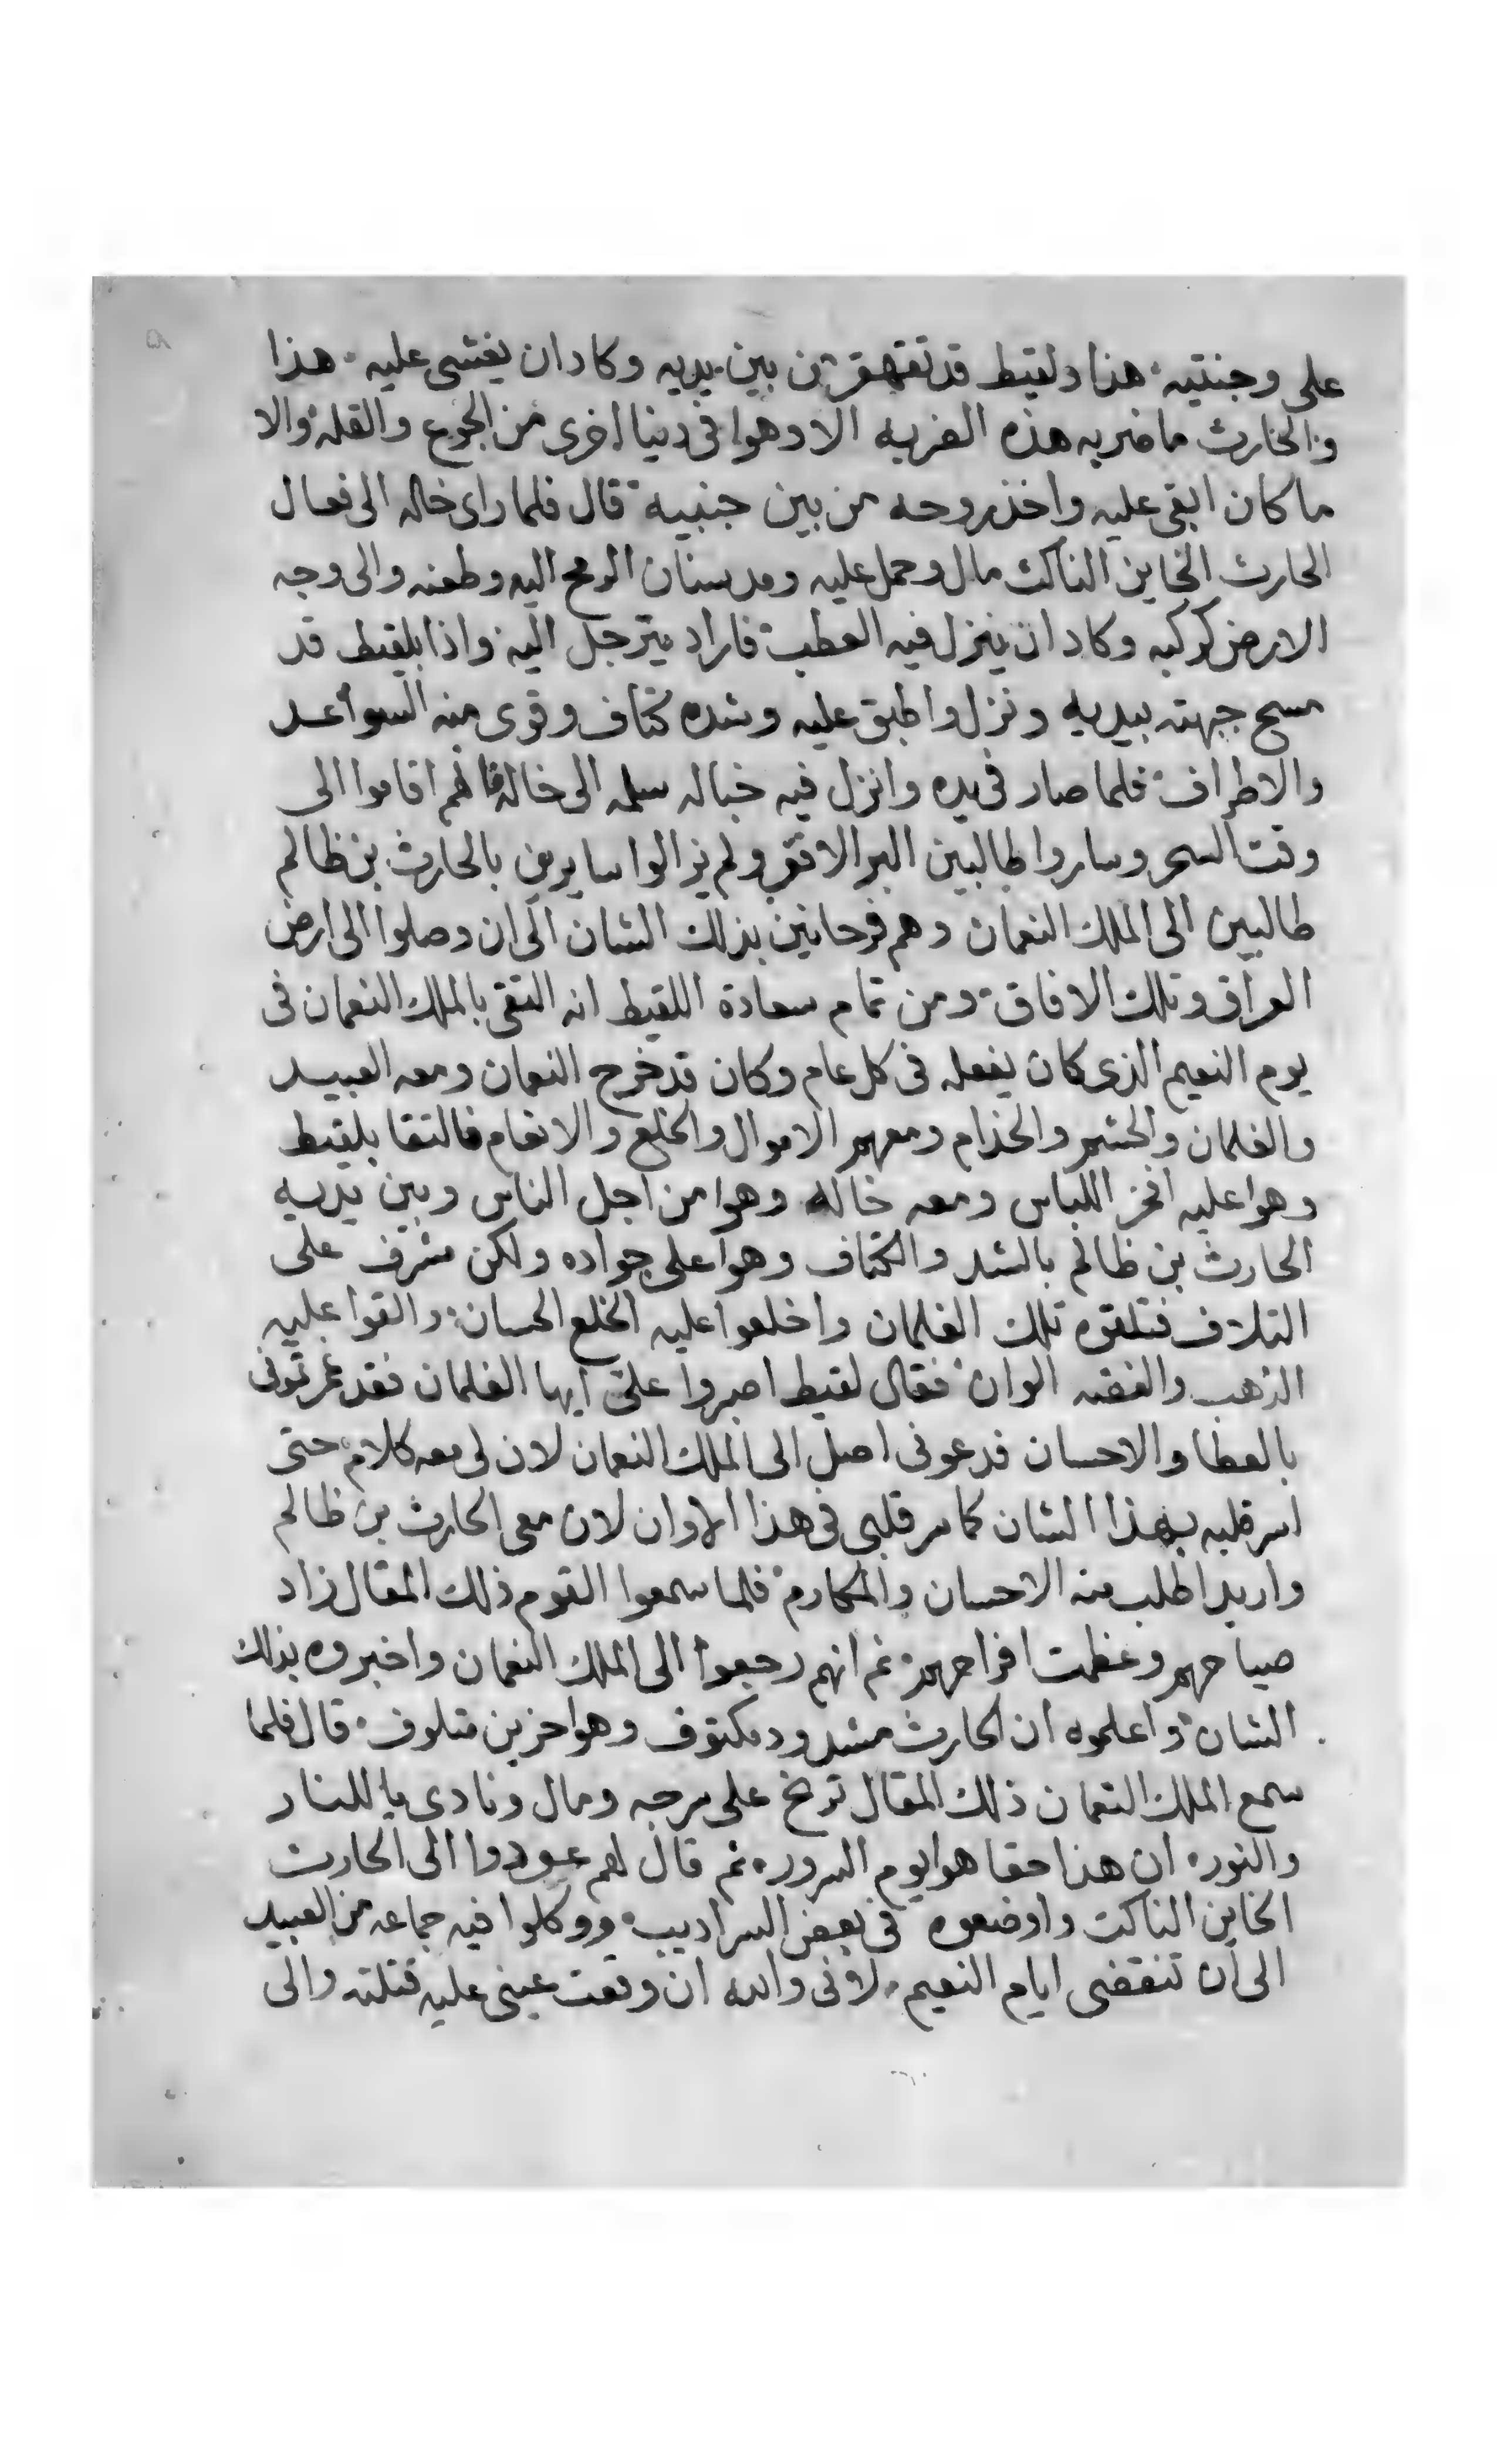 على وجنتيه هذا ولقيط قد تقهقر من بين يديه وكاد ان يغشى عليه هذا
والحارث ما ضربه هذه الضربه الا وهوا فى دنيا اخرى من الجوع والقله والا
ما كان ابقى عليه واخذ روحه من بين جنبيه قال فلما راى خاله الى فعال
الحارث الخاين الناكث مال وحمل عليه ومد سنان الرمح اليه وطعنه والى وجه
الارض كركبه وكاد ان ينزل فيه العطب فاراد يترجل اليه واذا بلقيط قد
مسح جبهته بيديه ونزل واطبق عليه وشده كتاف وقوى منه السواعد
والاطراف فلما صار فى يده وانزل فيه خباله سلمه الى خاله فانهم اقاموا الى
وقت السحر وساروا طالبين البر الاقفر ولم يزالوا سايرين بالحارث بن ظالم
طالبين الى الملك النعمان وهم فرحانين بذلك الشان الى ان وصلوا الى ارض
العراق وتلك الافاق ومن تمام سعادة اللقيط انه التقى بالملك النعمان فى
يوم النعيم الذى كان يفعله فى كل عام وكان قد خرج النعمان ومعه العبيد
والغلمان والحشم والخدام ومعهم الاموال والخلع والانعام فالتقا بلقيط
وهوا عليه افخر اللباس ومعه خاله وهوا من اجل الناس وبين يديه
الحارث بن ظالم بالشد والكتاف وهوا على جواده ولكن مشرف على
التلاف فتلقوه تلك الغلمان واخلعوا عليه الخلع الحسان والقوا عليه
الذهب والفضه الوان فقال لقيط اصبروا علىّ ايها الغلمان فقد غمرتمونى
بالعطا والاحسان فدعونى اصل الى الملك النعمان لان لى معه كلام حتى
اسر قلبه بهذا الشان كما سر قلبى فى هذا الاوان لان معى الحارث بن ظالم
واريد اطلب منه الاحسان والمكارم فلما سمعوا القوم ذلك المقال زاد
صياحهم وعظمت افراحهم ثم انهم رجعوا الى الملك النعمان واخبروه بذلك
الشان واعلموه ان الحارث مشدود مكتوف وهوا حزين متلوف قال فلما
سمع الملك النعمان ذلك المقال ترنح على سرجه ومال ونادى يا للنار
والنور ان هذا حقا هوا يوم السرور ثم قال لهم عودوا الى الحارث
الخاين الناكت واوضعوه فى بعض السراديب ووكلوا فيه جماعه من العبيد
الى ان تنقضى ايام النعيم لانى والله ان وقعت عينى عليه قتلته والى